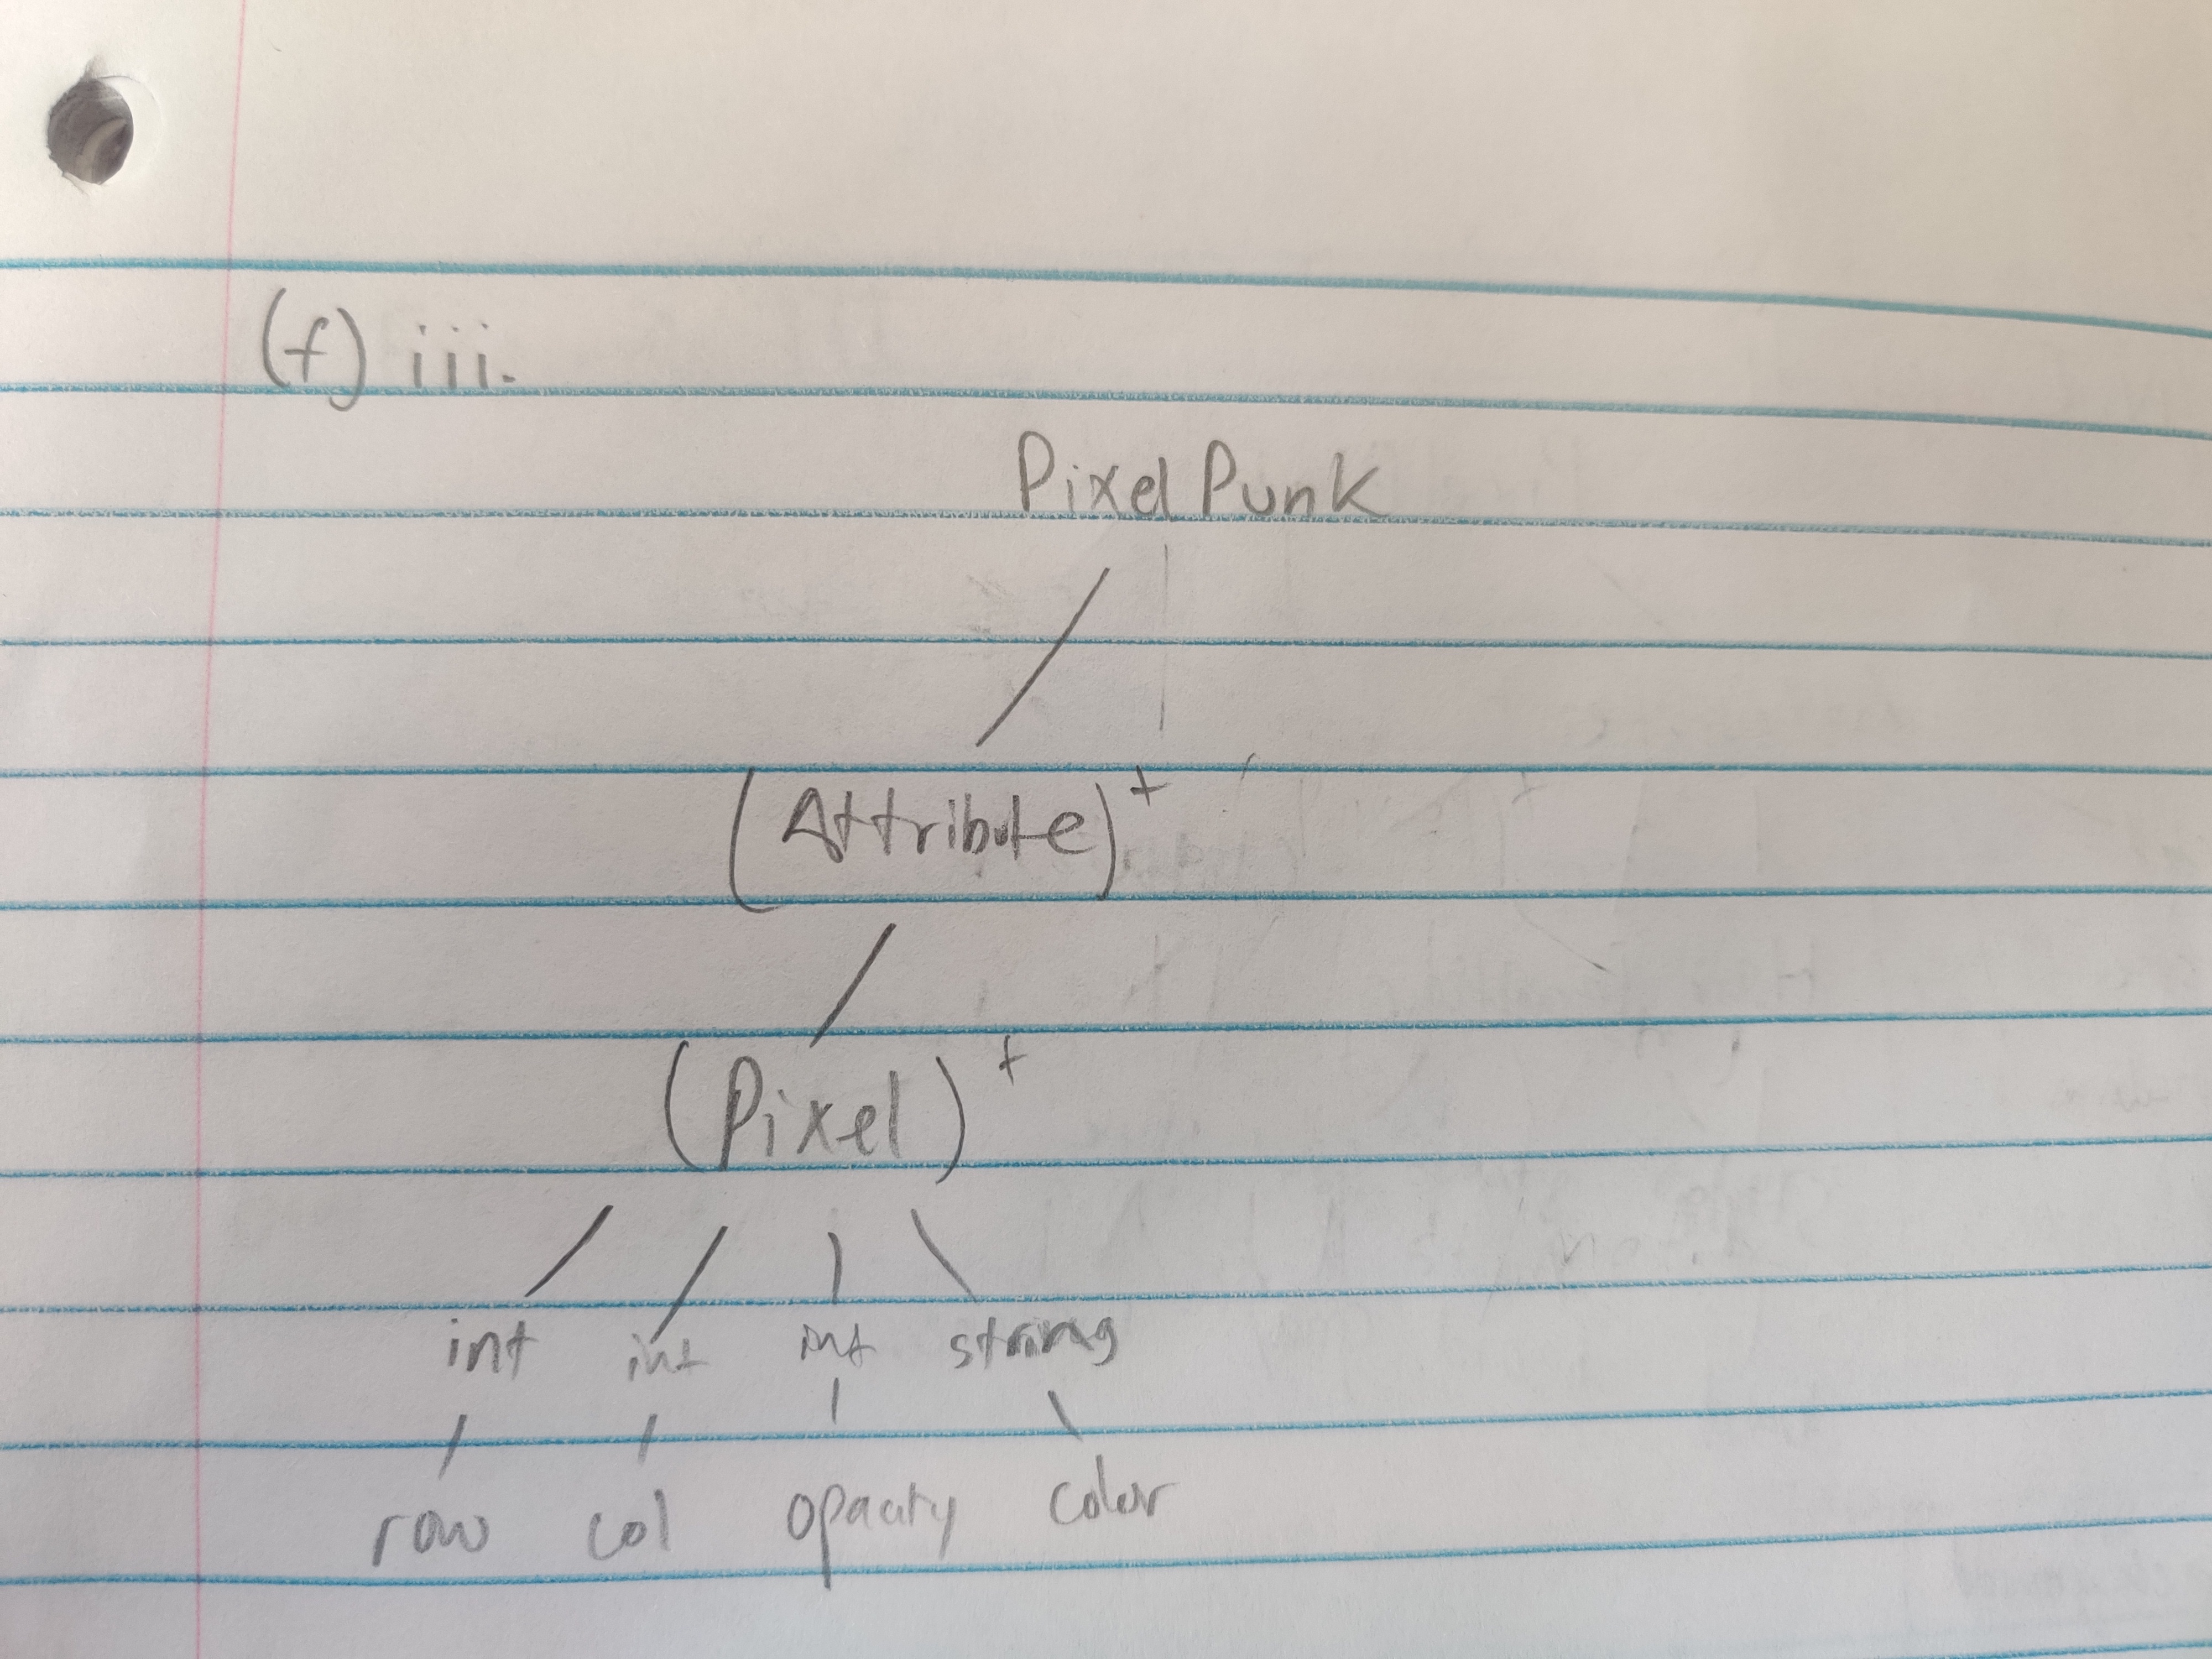 (f) iii.
Pixel Punk
(Attribute)+
(Pixel)+
int int int string
row col opacity color